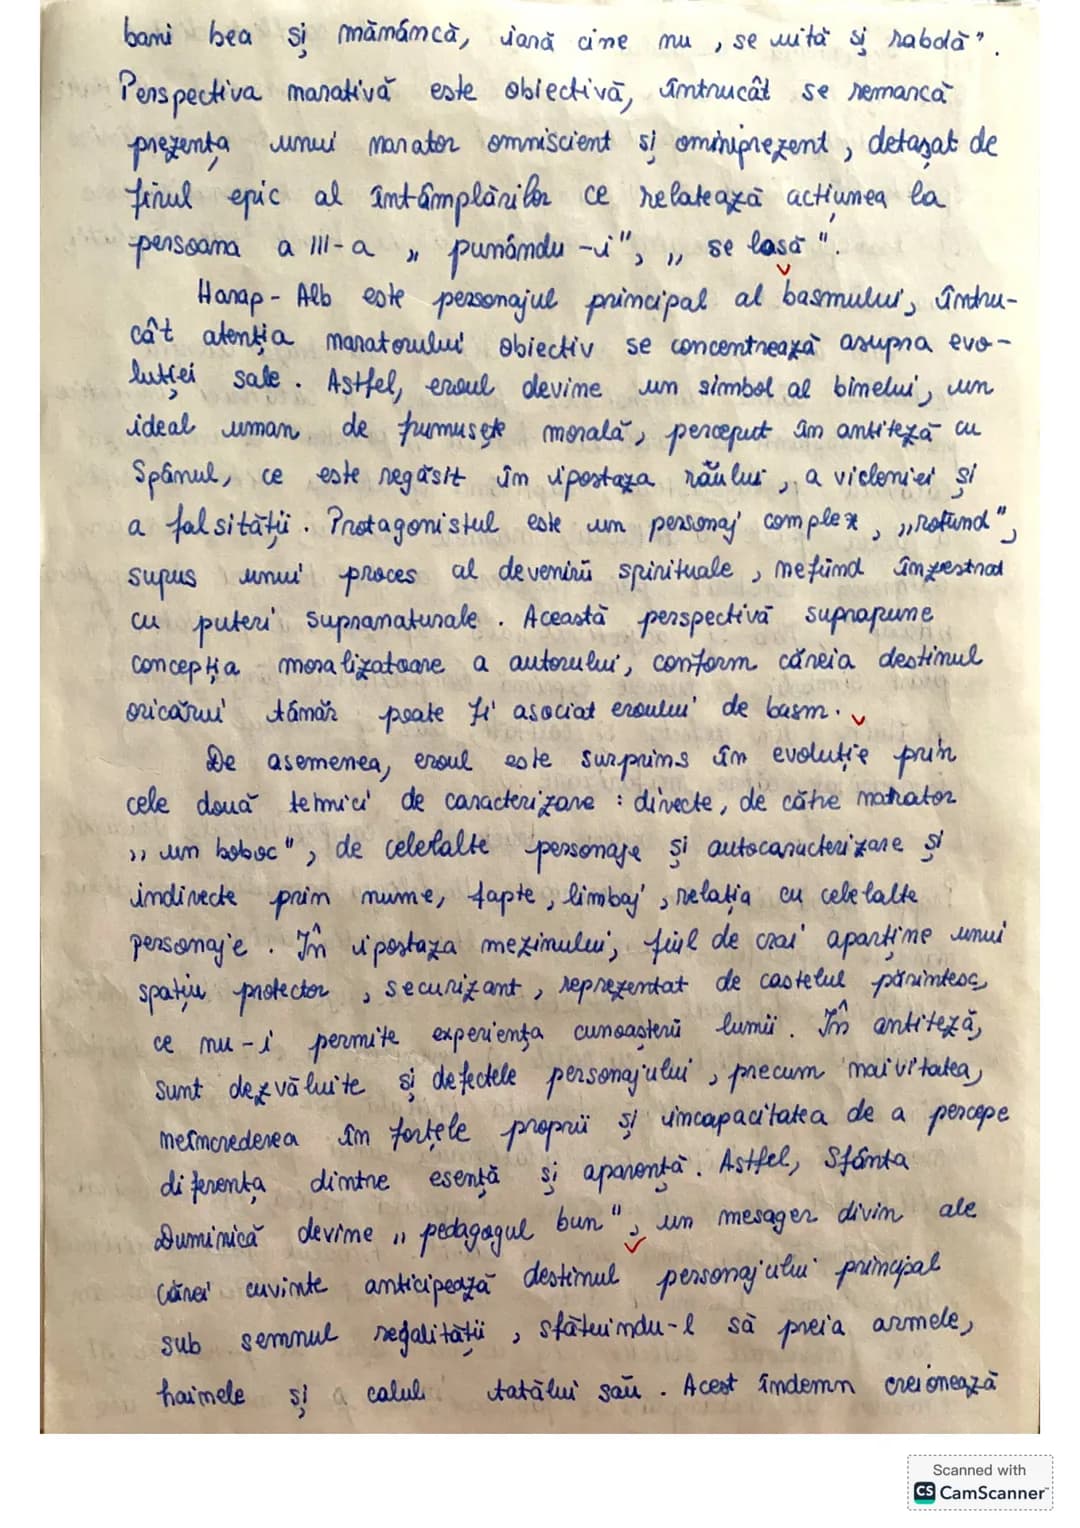 bani bea și mămâncă, iară cine nu, se uită și rabdă".
Perspectiva narativă este obiectivă, întrucât se remarcă
prezența unui narator omniscient și ominiprezent, detașat de
firul epic al întâmplărilor ce relatează acțiunea la
persoana a III-a „punându-i", „se lasă".
Harap-Alb este personajul principal al basmului, întru-
cât atenția naratorului obiectiv se concentrează asupra evo-
luției sale. Astfel, eroul devine un simbol al binelui, un
ideal uman de frumusețe morală, perceput în antiteză cu
Spânul, ce este regăsit în ipostaza răului, a vicleniei și
a falsității. Protagonistul este un personaj complex, „rotund",
supus unui proces al devenirii spirituale, nefiind înzestrat
cu puteri supranaturale. Această perspectivă suprapune
concepția moralizatoare a autorului, conform căreia destinul
oricărui tânăr poate fi asociat eroului de basm.
De asemenea, eroul este surprins în evoluție prin
cele două tehnici de caracterizare: directe, de către narator
„un boboc", de celelalte personaje și autocaracterizare și
indirecte prin nume, fapte, limbaj, relația cu celelalte
personaje. În ipostaza mezinului, fiul de crai aparține unui
spațiu protector, securizant, reprezentat de castelul părintesc,
ce nu-i permite experiența cunoașterii lumii. În antiteză,
sunt dezvăluite și defectele personajului, precum naivitatea,
neîncrederea în forțele proprii și incapacitatea de a percepe
diferența dintre esență și aparență. Astfel, Sfânta
Duminică devine „pedagogul bun", un mesager divin ale
cărei cuvinte anticipează destinul personajului principal
sub semnul regalității, sfătuindu-l să preia armele,
hainele și calul tatălui său. Acest îndemn creionează
Scanned with
CS CamScanner